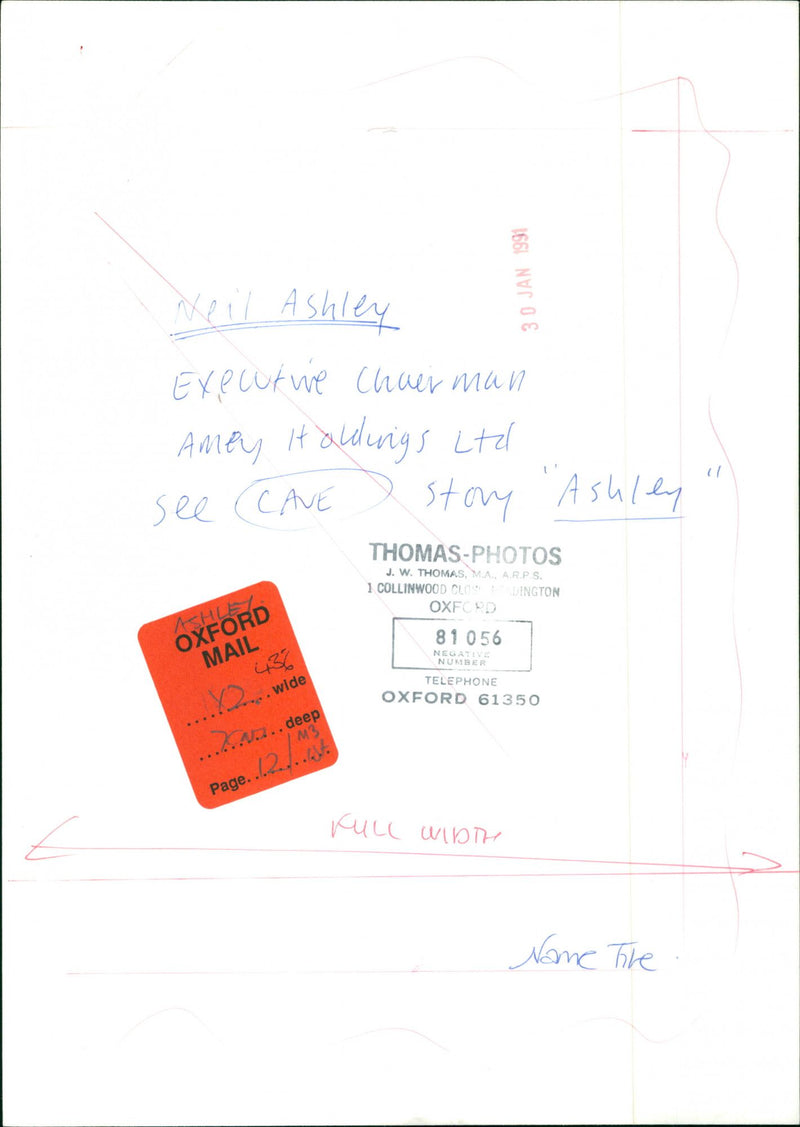 30 JAN 1991
Neil Ashley
Executive Chairman
Amey Holdings Ltd
see CAVE story "Ashley"
THOMAS-PHOTOS
J. W. THOMAS, M.A., A.R.P.S.
1 COLLINWOOD CLOSE HEADINGTON
OXFORD
81 056
NEGATIVE
NUMBER
TELEPHONE
OXFORD 61350
ASHLEY
OXFORD
MAIL
436
wide
deep
Page 12/
FULL WIDTH
Name